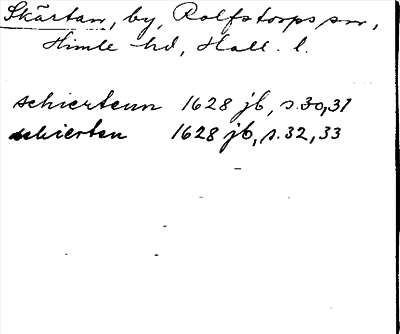 Skärtan, by, Rolfstorps sn,
Himle hd, Hall. l.
schiertenn 1628 jb, s. 30, 31
schierten 1628 jb, s. 32, 33